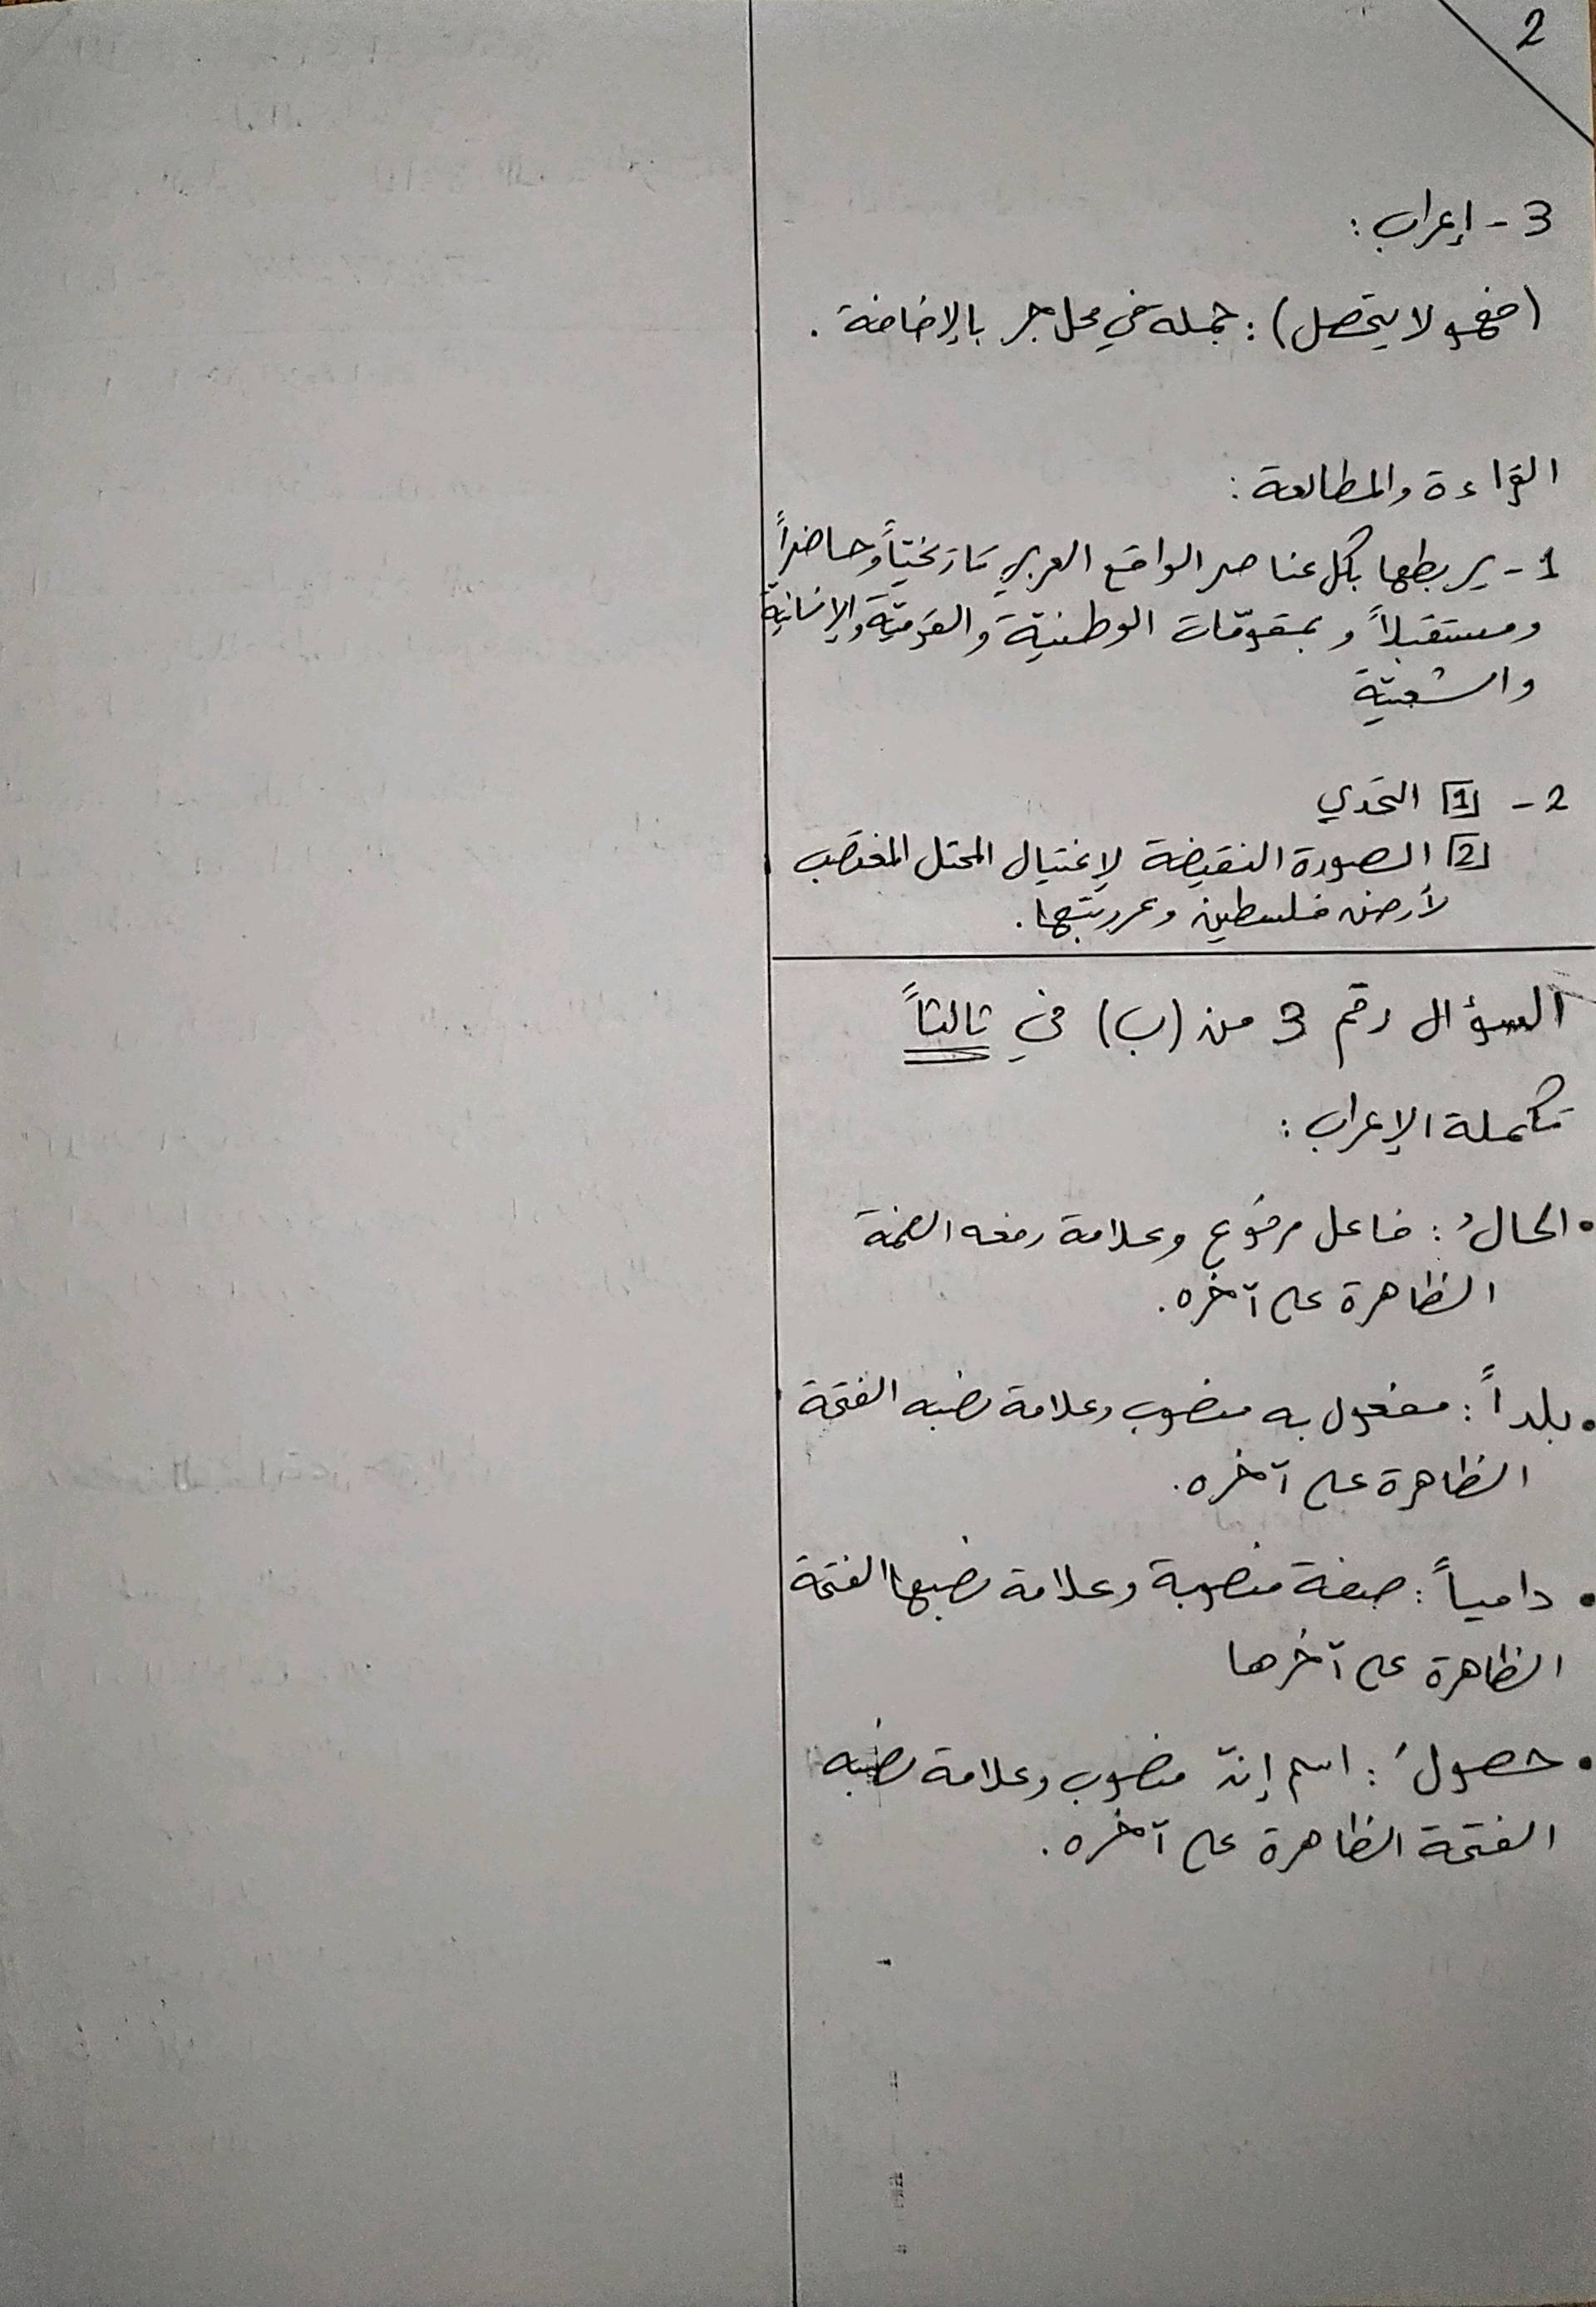 2
3 - إعراب :
(فهو لا يتصل) : جملة في محل جر بالإضافة .
القراءة والمطالعة :
1 - يربطها بكل عناصر الواقع العربي تاريخيّاً وحاضراً
ومستقبلاً و بمقوّمات الوطنيّة والقوميّة والإنسانيّة
والشعبيّة
2 - [1] التحدي
[2] الصورة النقيضة لإغتيال المحتل المغتصب
لأرض فلسطين وعروبتها .
السؤال رقم 3 من (ب) في ثالثاً
تكملة الإعراب :
• الحالُ : فاعل مرفوع وعلامة رفعه الضمة
الظاهرة على آخره .
• بلداً : مفعول به منصوب وعلامة نصبه الفتحة
الظاهرة على آخره .
• دامياً : صفة منصوبة وعلامة نصبها الفتحة
الظاهرة على آخرها
• حصولَ : اسم إنّ منصوب وعلامة نصبه
الفتحة الظاهرة على آخره .